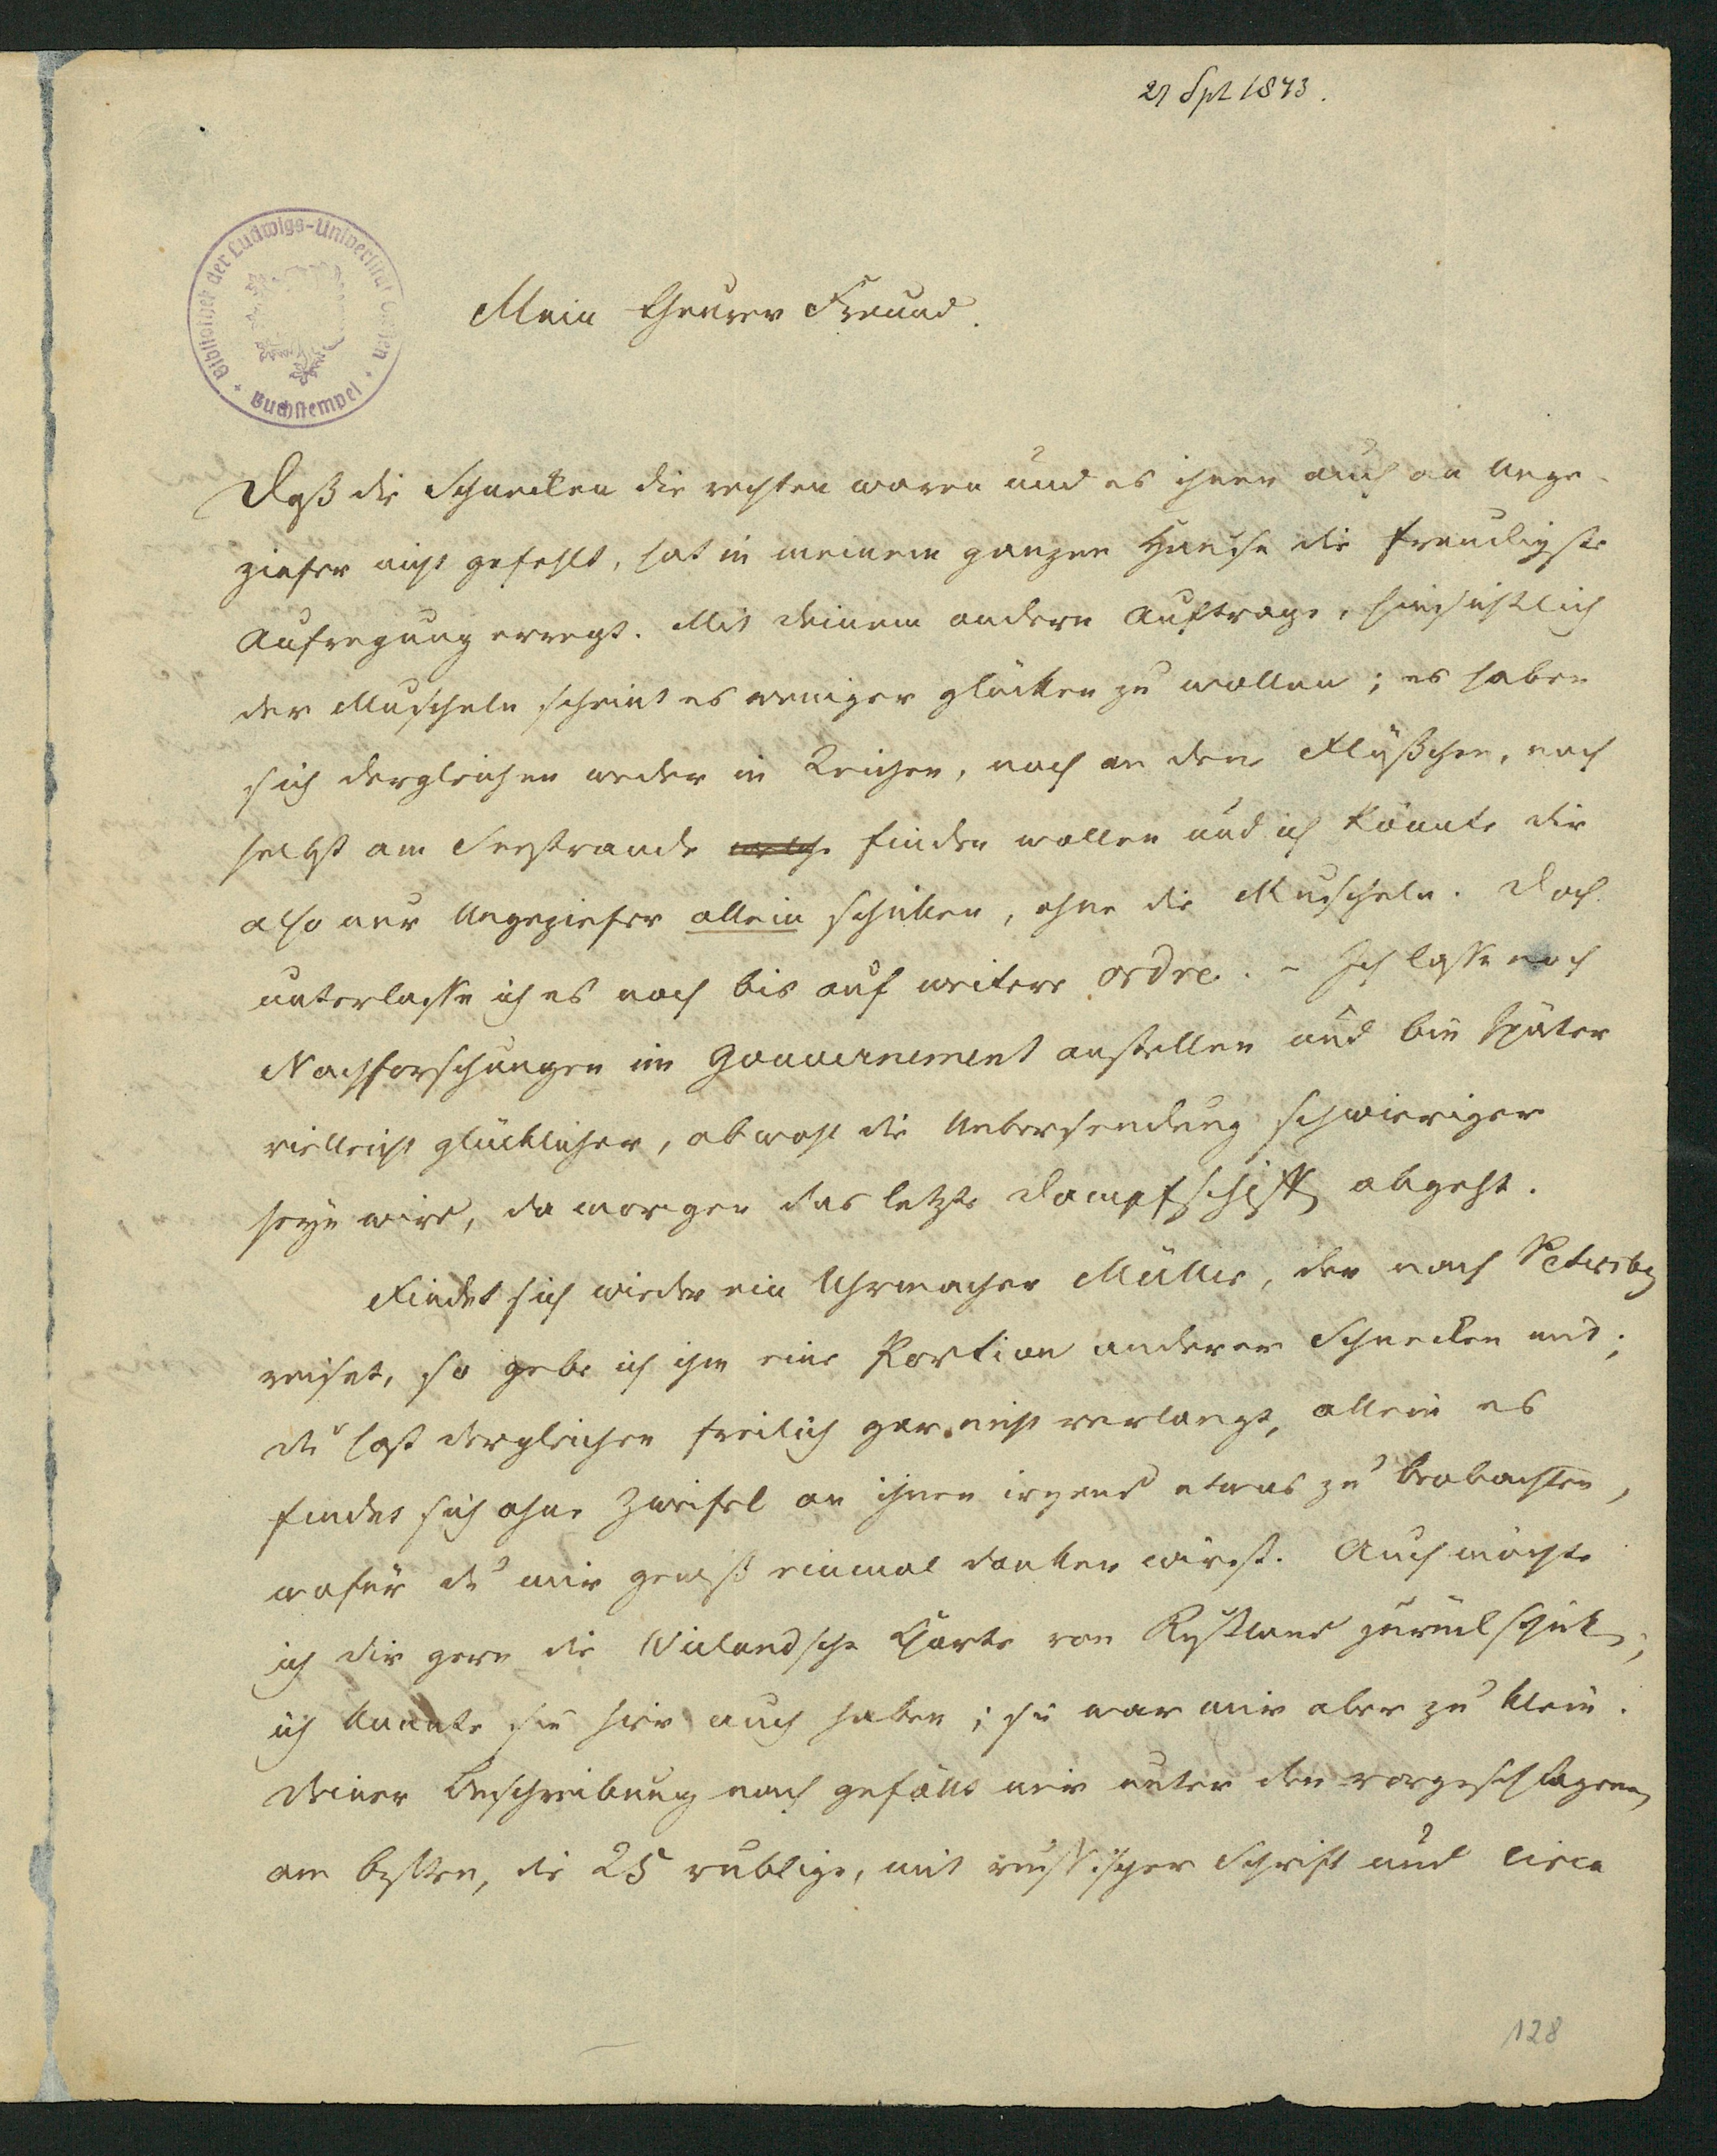 21 Spt 1843.
Bibliothek der Ludwigs-Universität Giessen
Buchstempel
Mein theurer Freund.
Daß die Schnecken die rechten waren und es ihnen auch an Unge-
ziefer nicht gefehlt, hat in meinem ganzen Hause die freudigste
Aufregung erregt. Mit deinem andern Auftrage, hinsichtlich
der Muscheln scheint es weniger glücken zu wollen; es haben
sich dergleichen weder in Teichen, noch an dem Flüßchen, noch
selbst am Seestrande welche finden wollen und ich könnte dir
also nur Ungeziefer allein schicken, ohne die Muscheln. Doch
unterlasse ich es noch bis auf weitere ordre. – Ich lasse noch
Nachforschungen im Gouvernement anstellen und bin später
vielleicht glücklicher, obwohl die Uebersendung schwieriger
seyn wird, da morgen das letzte Dampfschiff abgeht.
Findet sich wieder ein Uhrmacher Müller, der nach Petersbg
reiset, so gebe ich ihm eine Portion anderer Schnecken mit;
du hast dergleichen freilich gar nicht verlangt, allein es
findet sich ohne Zweifel an ihnen irgend etwas zu beobachten,
wofür du mir gewiß einmal danken wirst. Auch möchte
ich dir gern die Wielandsche Charte von Rußland zurückschicken;
ich konnte sie hier auch haben; sie war mir aber zu klein.
Deiner Beschreibung nach gefällt mir unter den vorgeschlagenen
am besten, die 25 rublige, mit russischer Schrift und circa
128